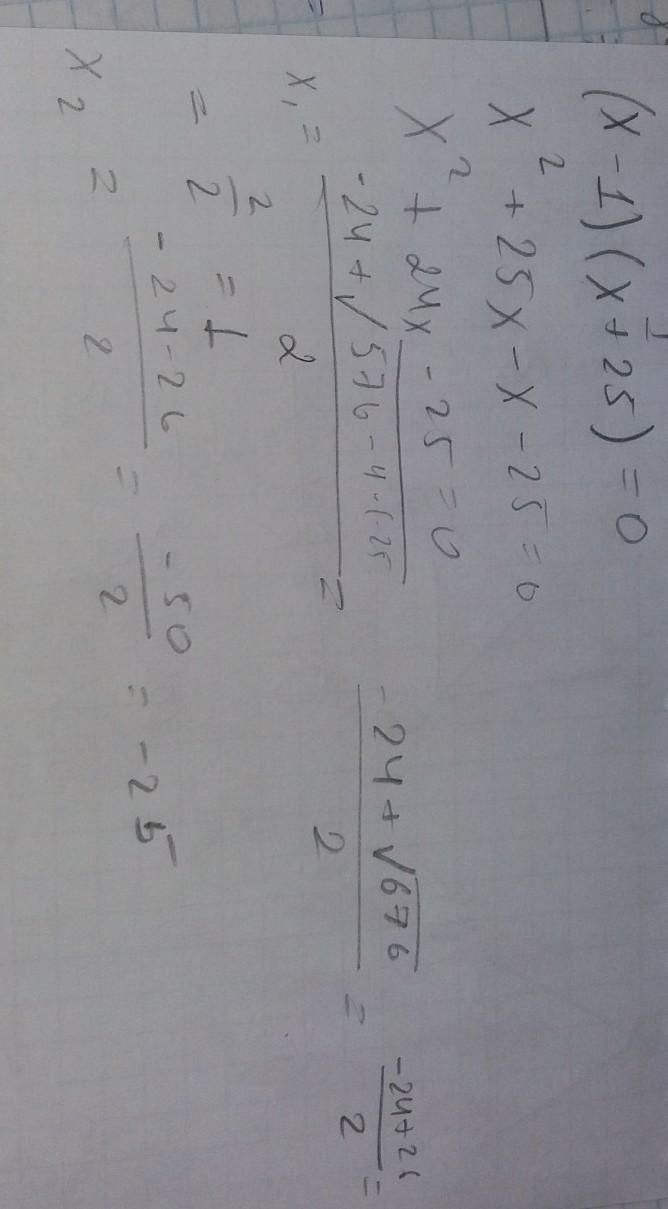 (x-1)(x+25)=0
x² + 25x - x - 25 = 0
x² + 24x - 25 = 0
x₁ = (-24 + √(576 - 4·(-25)) / 2 = (-24 + √676) / 2 = (-24+26) / 2 =
= 2/2 = 1
x₂ = (-24-26) / 2 = -50/2 = -25